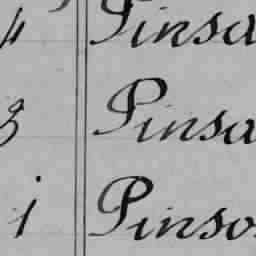 4 Pinsa
3 Pinsa
1 Pinso